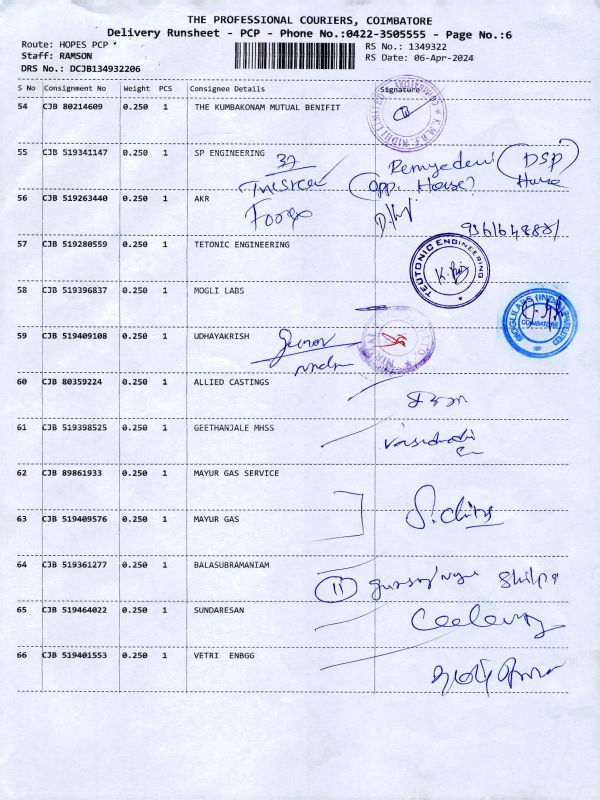 THE PROFESSIONAL COURIERS, COIMBATORE
Delivery Runsheet - PCP - Phone No.:0422-3505555 - Page No.:6
Route: HOPES PCP
RS No.: 1349322
Staff: RAMSON
RS Date: 06-Apr-2024
DRS No.: DCJB134932206
S No Consignment No Weight PCS Consignee Details Signature
54 CJB 80214609 0.250 1 THE KUMBAKONAM MUTUAL BENIFIT
55 CJB 519341147 0.250 1 SP ENGINEERING 37
(DSP)
(opp. House) House
56 CJB 519263440 0.250 1 AKR
57 CJB 519280559 0.250 1 TETONIC ENGINEERING
TEUTONIC ENGINEERING
58 CJB 519396837 0.250 1 MOGLI LABS
MOGLILABS (INDIA) PRIVATE LIMITED
COIMBATORE
59 CJB 519409108 0.250 1 UDHAYAKRISH
60 CJB 80359224 0.250 1 ALLIED CASTINGS
61 CJB 519398525 0.250 1 GEETHANJALE MHSS
62 CJB 89861933 0.250 1 MAYUR GAS SERVICE
63 CJB 519409576 0.250 1 MAYUR GAS
64 CJB 519361277 0.250 1 BALASUBRAMANIAM
11 Shilpa
65 CJB 519464022 0.250 1 SUNDARESAN
66 CJB 519401553 0.250 1 VETRI ENBGG